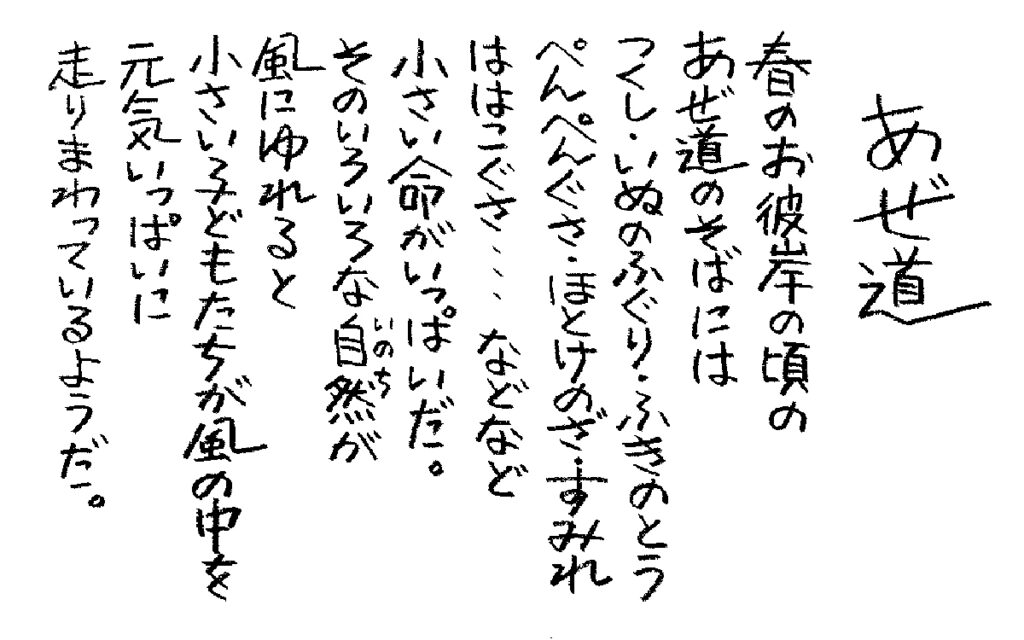 あぜ道
春のお彼岸の頃の
あぜ道のそばには
つくし・いぬのふぐり・ふきのとう
ぺんぺんぐさ・ほとけのざ・すみれ
ははこぐさ・・・などなど
小さい命がいっぱいだ。
そのいろいろな自然が
いのち
風にゆれると
小さい子どもたちが風の中を
元気いっぱいに
走りまわっているようだ。